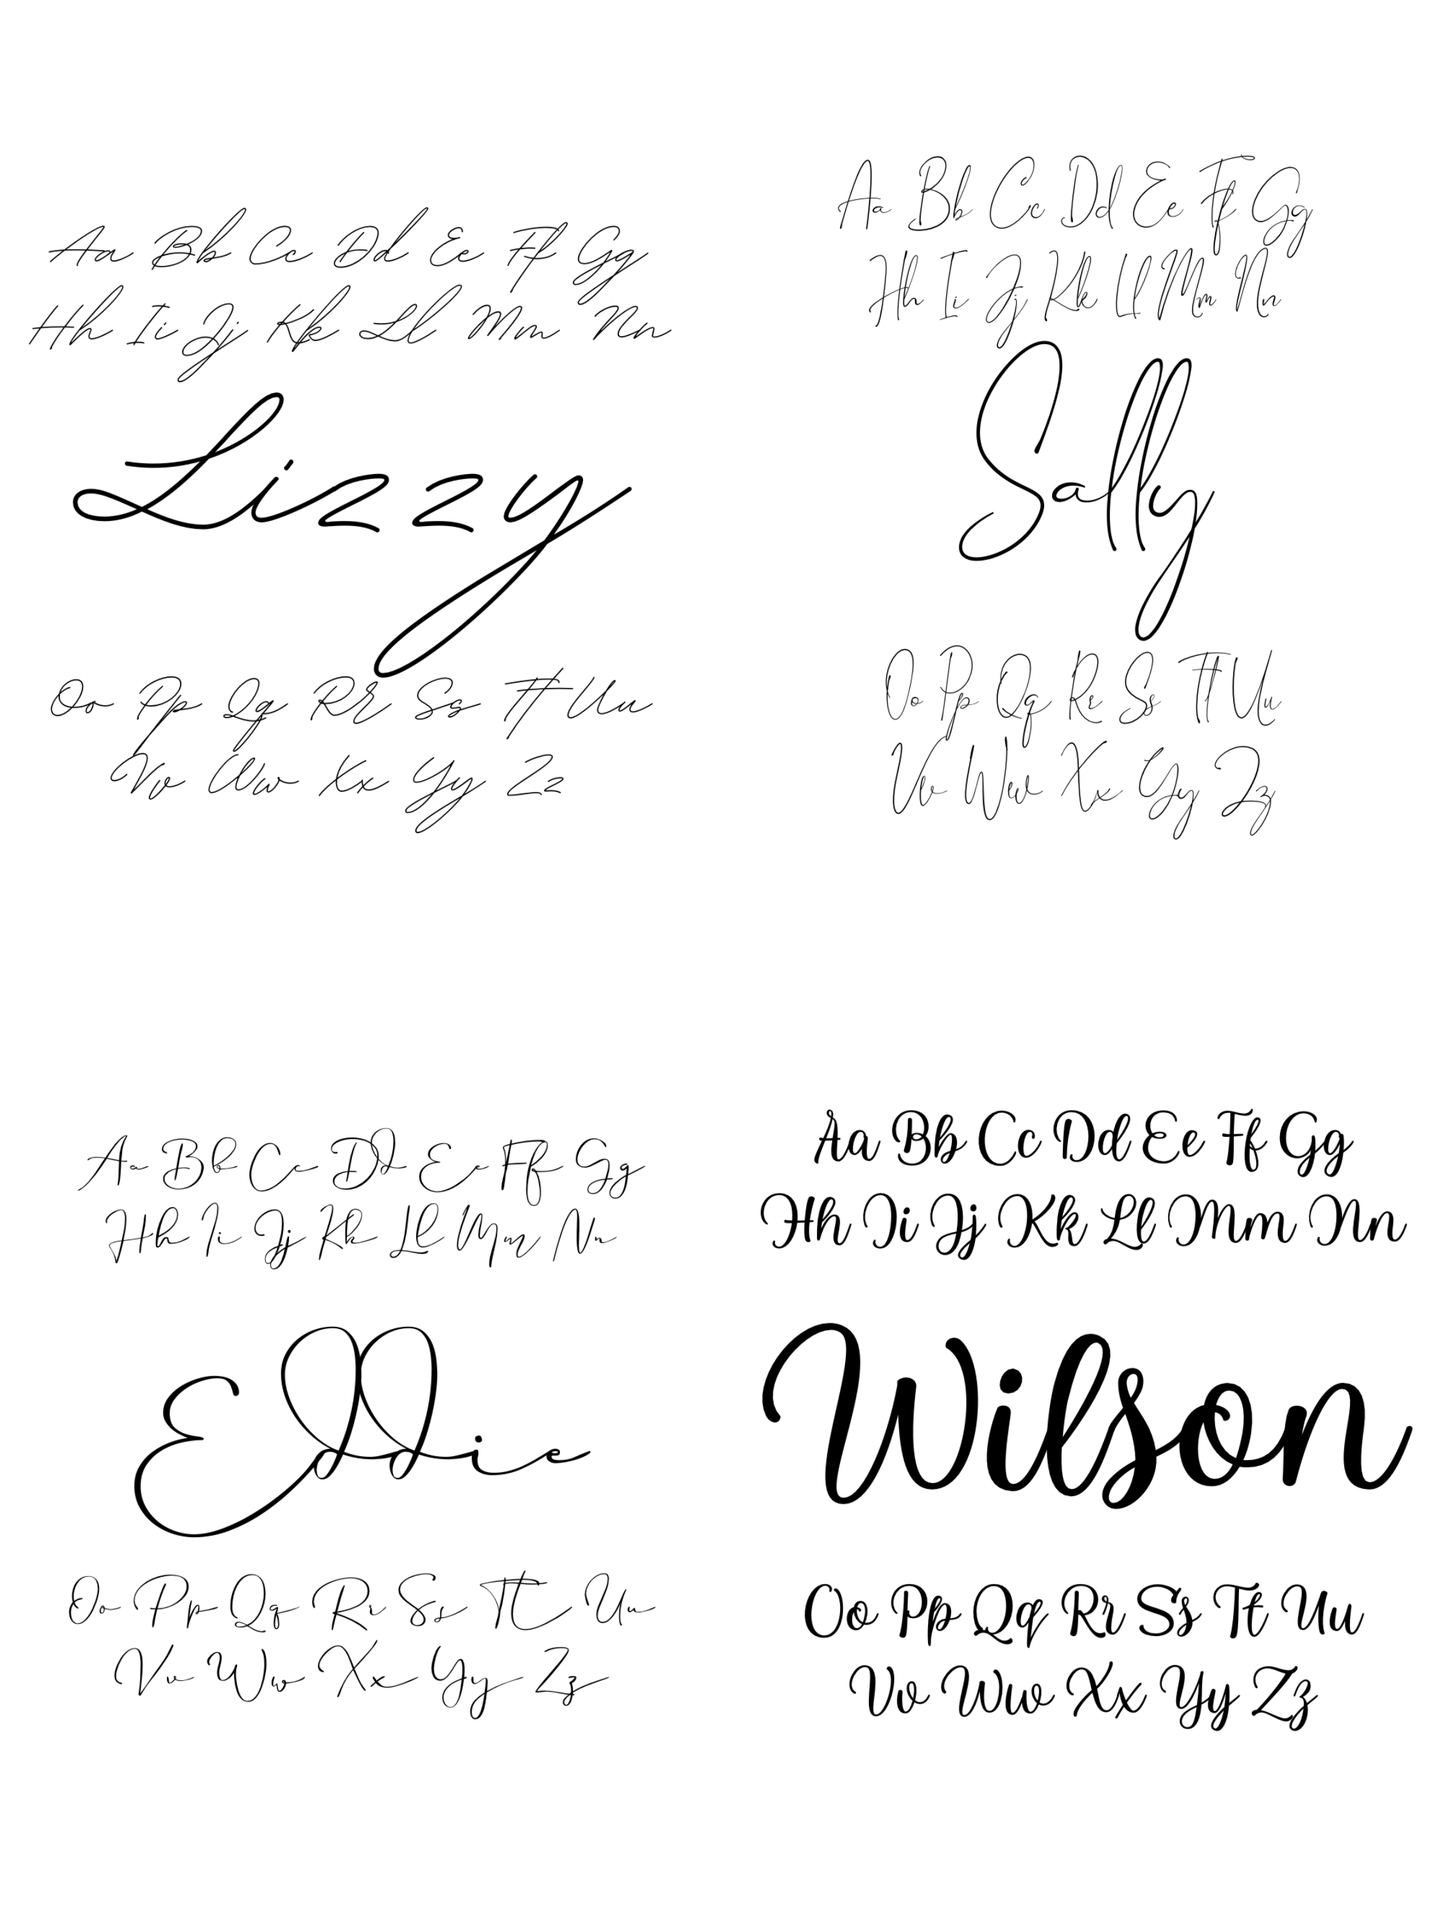 Aa Bb Cc Dd Ee Ff Gg
Hh Ii Jj Kk Ll Mm Nn
Lizzy
Oo Pp Qq Rr Ss Tt Uu
Vv Ww Xx Yy Zz
Aa Bb Cc Dd Ee Ff Gg
Hh Ii Jj Kk Ll Mm Nn
Sally
Oo Pp Qq Rr Ss Tt Uu
Vv Ww Xx Yy Zz
Aa Bb Cc Dd Ee Ff Gg
Hh Ii Jj Kk Ll Mm Nn
Eddie
Oo Pp Qq Rr Ss Tt Uu
Vv Ww Xx Yy Zz
Aa Bb Cc Dd Ee Ff Gg
Hh Ii Jj Kk Ll Mm Nn
Wilson
Oo Pp Qq Rr Ss Tt Uu
Vv Ww Xx Yy Zz